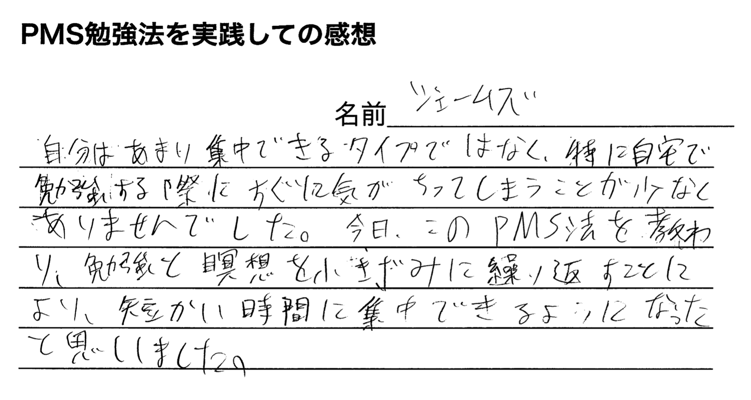 PMS勉強法を実践しての感想
名前 ジェームズ
自分はあまり集中できるタイプではなく、特に自宅で
勉強する際にすぐに気がちってしまうことが少なく
ありませんでした。今日、このPMS法を教わ
り、勉強と瞑想を小きざみに繰り返すことに
より、短かい時間に集中できるようになった
と思いました。